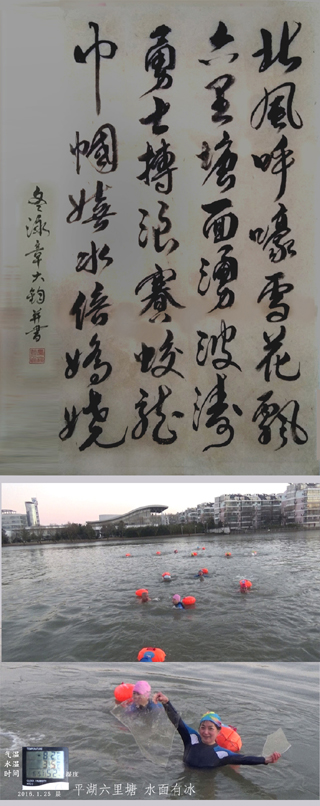 北风呼嚎雪花飘
六里塘面湧波涛
勇士搏浪赛蛟龙
巾帼嬉水倍娇娆
冬泳章大钧并书
气温
水温
时间
湿度
2019.1.25 晨
平湖六里塘 水面有冰